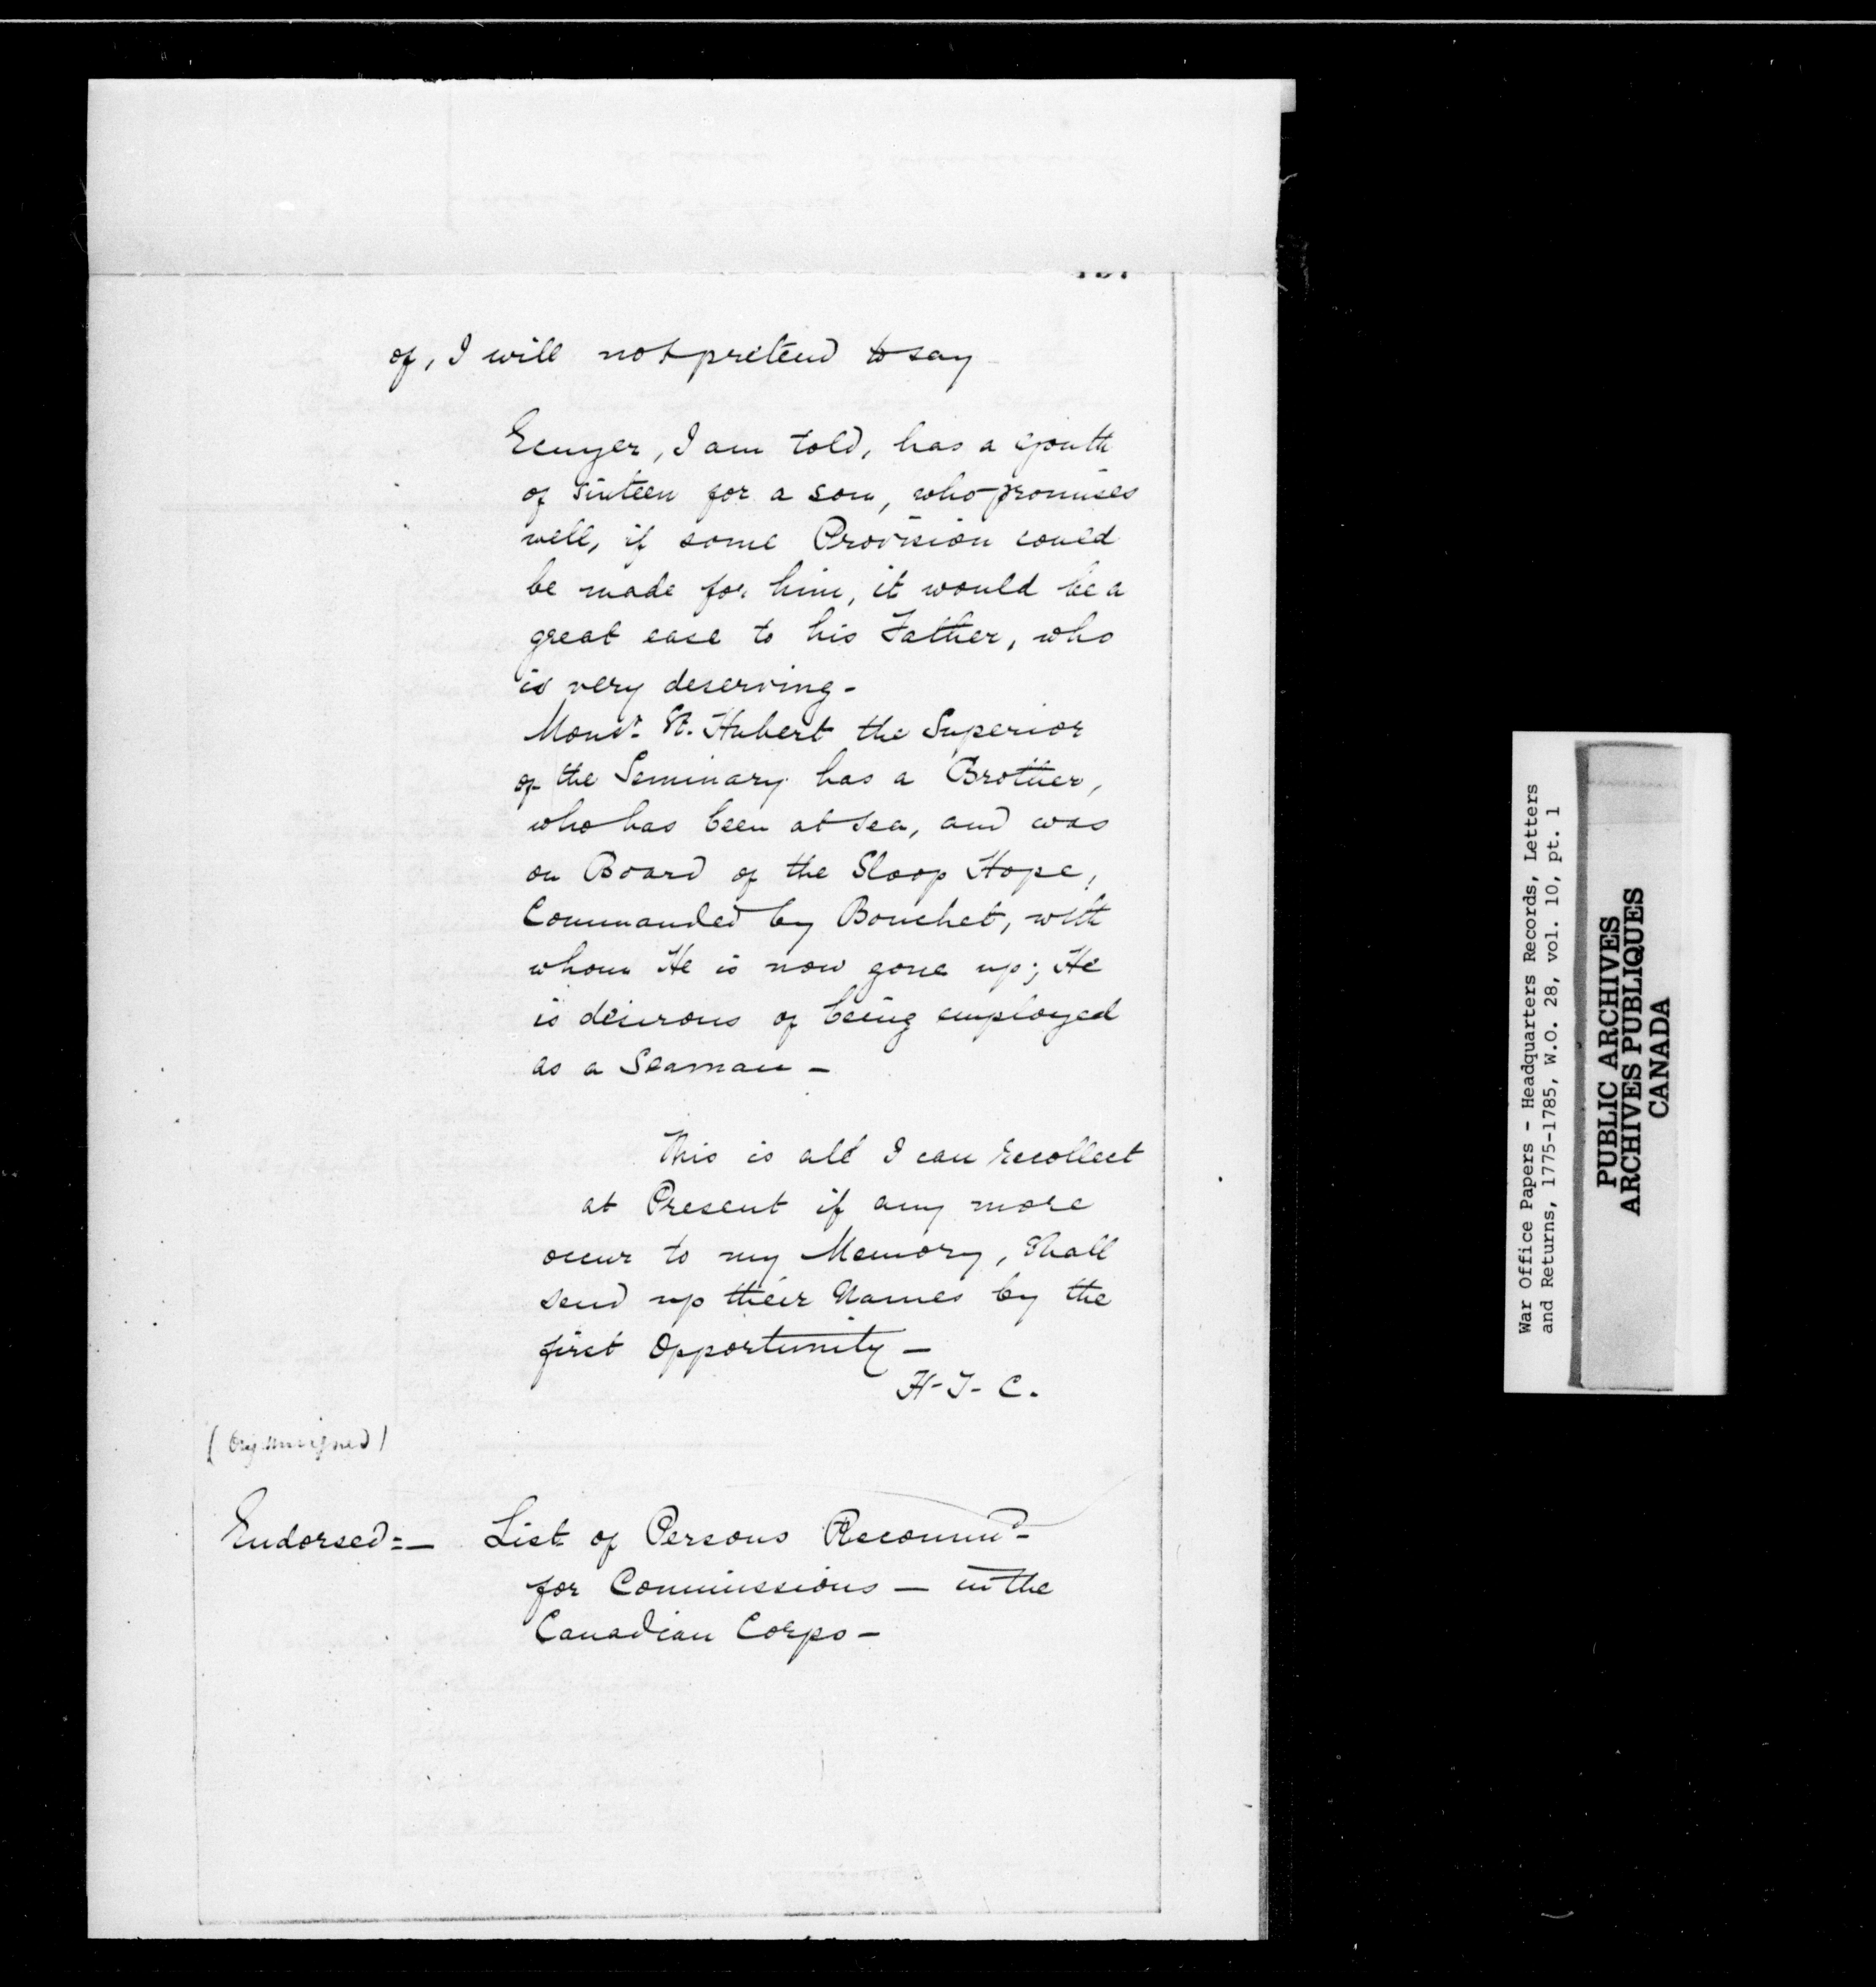 of, I will not pretend to say
Ecuyer, I am told, has a youth
of sixteen for a son, who promises
well, if some Provision could
be made for him, it would be a
great ease to his Father, who
is very deserving -
Monsr. St. Hubert the Superior
of the Seminary has a Brother,
who has been at sea, and was
on Board of the Sloop Hope,
Commanded by Bouchet, with
whom He is now gone up; He
is desirous of being employed
as a Seaman -
This is all I can recollect
at Present if any more
occur to my Memory, shall
send up their Names by the
first Opportunity -
H-T- C.
(Orig unsigned)
Endorsed:- List of Persons Recommd-
for Commissions - in the
Canadian Corps -
War Office Papers - Headquarters Records, Letters
and Returns, 1775-1785, W.O. 28, vol. 10, pt. 1
PUBLIC ARCHIVES
ARCHIVES PUBLIQUES
CANADA